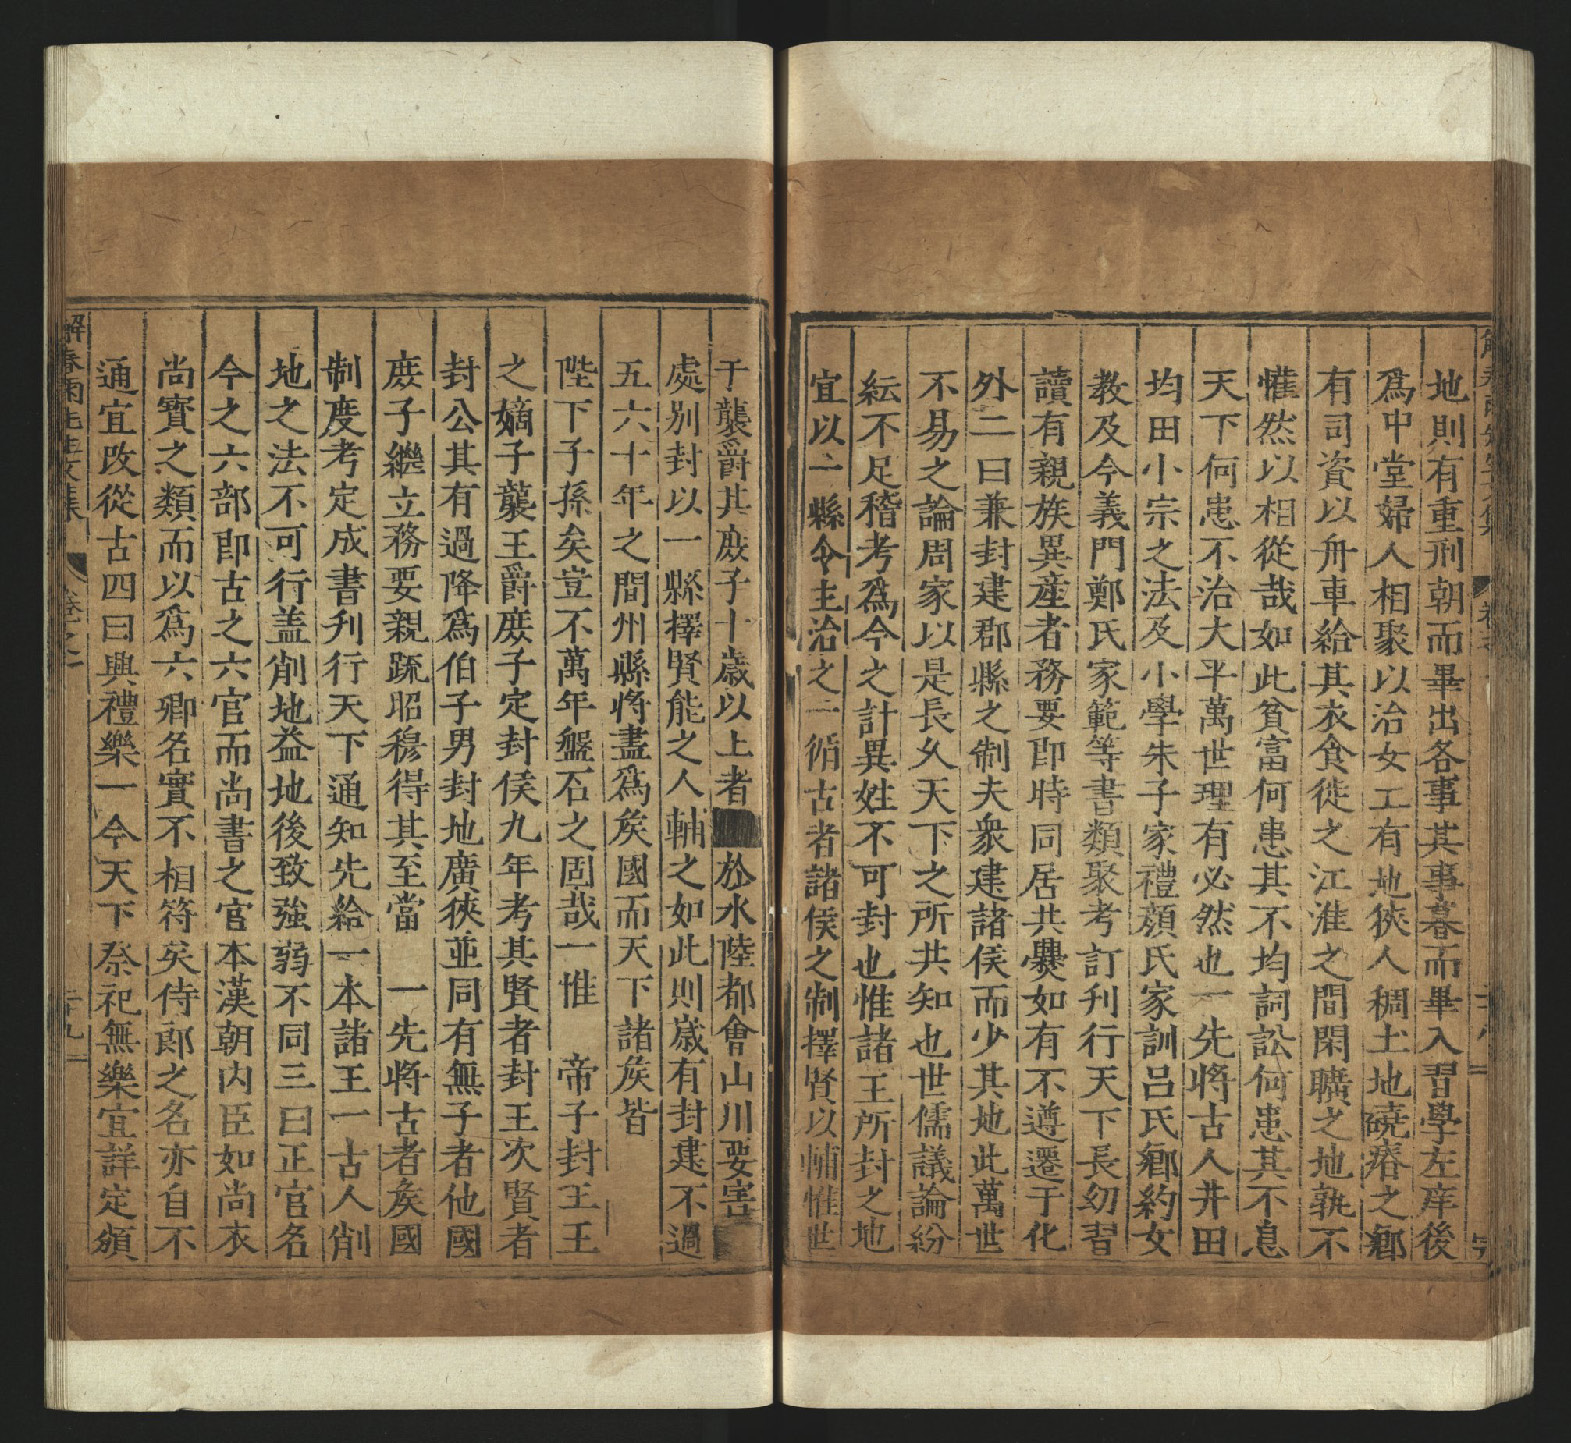 地則有重刑朝而畢出各事其事暮而畢入習學左庠後
爲中堂婦人相聚以治女工有地狹人稠土地磽瘠之鄉
有司資以舟車給其衣食徙之江淮之間閑曠之地孰不
懽然以相從哉如此貧富何患其不均詞訟何患其不息
天下何患不治大平萬世理有必然也一先將古人井田
均田小宗之法及小學朱子家禮顔氏家訓呂氏鄉約女
教及今義門鄭氏家範等書類聚考訂刋行天下長幼習
讀有親族異産者務要即時同居共爨如有不遵遷于化
外二曰兼封建郡縣之制夫衆建諸侯而少其地此萬世
不易之論周家以是長久天下之所共知也世儒議論紛
紜不足稽考爲今之計異姓不可封也惟諸王所封之地
宜以一縣令主治之一循古者諸侯之制擇賢以輔惟世
子襲爵其庻子十歲以上者於水陸都會山川要害
處别封以一縣擇賢能之人輔之如此則歲有封建不過
五六十年之間州縣將盡爲侯國而天下諸侯皆
陛下子孫矣豈不萬年盤石之固哉一惟 帝子封王王
之嫡子襲王爵庻子定封侯九年考其賢者封王次賢者
封公其有過降爲伯子男封地廣狹並同有無子者他國
庻子繼立務要親踈昭穆得其至當 一先將古者侯國
制度考定成書刋行天下通知先給一本諸王一古人削
地之法不可行盖削地益地後致強弱不同三曰正官名
今之六部即古之六官而尚書之官本漢朝内臣如尚衣
尚寳之類而以爲六卿名實不相符矣侍郎之名亦自不
通宜改從古四曰興禮樂一今天下祭祀無樂宜詳定頒
解春雨先生文集 卷之 十九